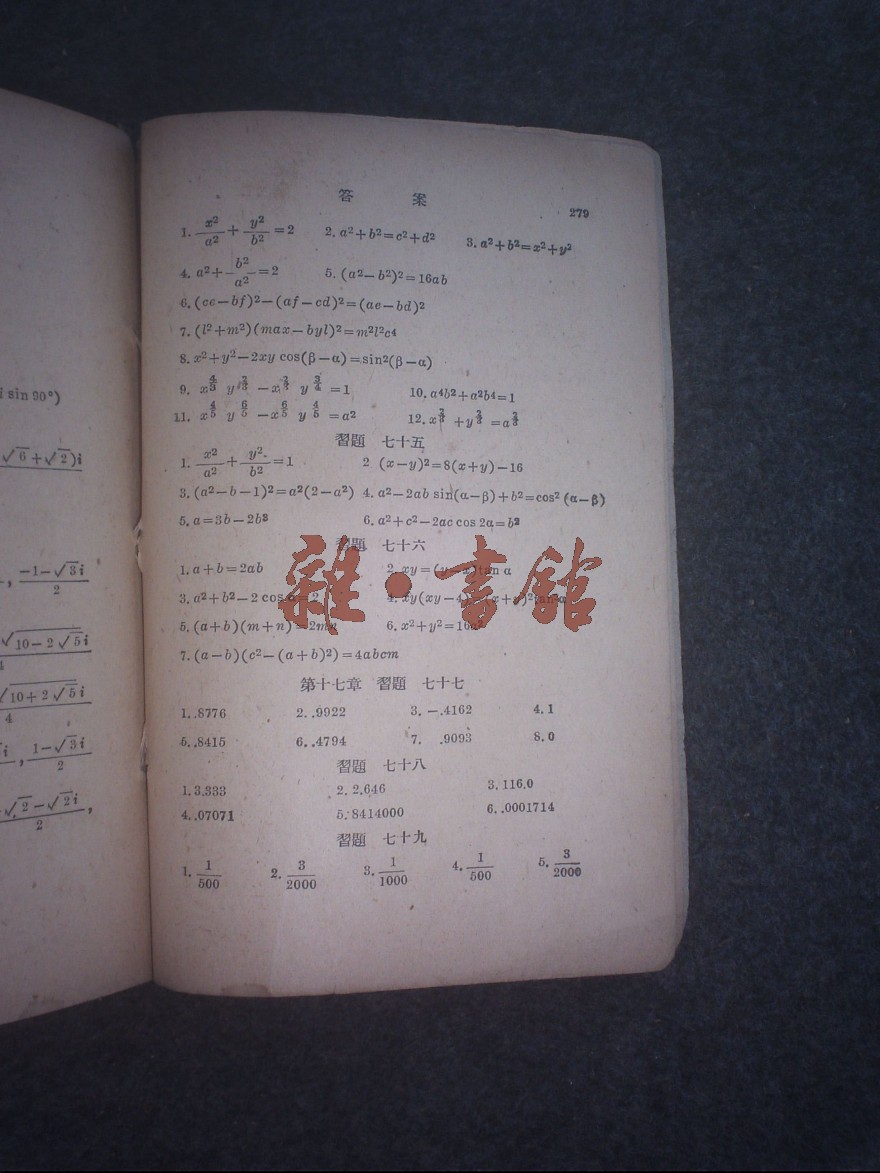 i sin 90°)
√6+√2)i
, -1-√3i / 2
√10-2√5i
√10+2√5i / 4
, 1-√3i / 2
-√2-√2i / 2 ,
答 案
279
1. x²/a² + y²/b² =2 2. a²+b²=c²+d² 3. a²+b²=x²+y²
4. a²+ b²/a² =2 5. (a²-b²)²=16ab
6. (ce-bf)²-(af-cd)²=(ae-bd)²
7. (l²+m²)(max-byl)²=m²l²c⁴
8. x²+y²-2xy cos(β-α)=sin²(β-α)
9. 10. a⁴b²+a²b⁴=1
11. x^(4/5) y^(6/5) -x^(6/5) y^(4/5) =a² 12. x^(2/3) +y^(2/3) =a^(2/3)
習題 七十五
1. x²/a² + y²/b² =1 2 (x-y)²=8(x+y)-16
3. (a²-b-1)²=a²(2-a²) 4. a²-2ab sin(α-β)+b²=cos²(α-β)
5. a=3b-2b³ 6. a²+c²-2ac cos 2α=b²
習題 七十六
1. a+b=2ab 2. xy=(y-x)tan α
3. a²+b²-2 cos α=2 4. xy(xy-4)=(x+y)²tan²α
5. (a+b)(m+n)=2mn 6. x²+y²=16a²
7. (a-b)(c²-(a+b)²)=4abcm
雜·書館
第十七章 習題 七十七
1. .8776 2. .9922 3. -.4162 4. 1
5. .8415 6. .4794 7. .9093 8. 0
習題 七十八
1. 3.333 2. 2.646 3. 116.0
4. .07071 5. 8414000 6. .0001714
習題 七十九
1. 1/500 2. 3/2000 3. 1/1000 4. 1/500 5. 3/2000